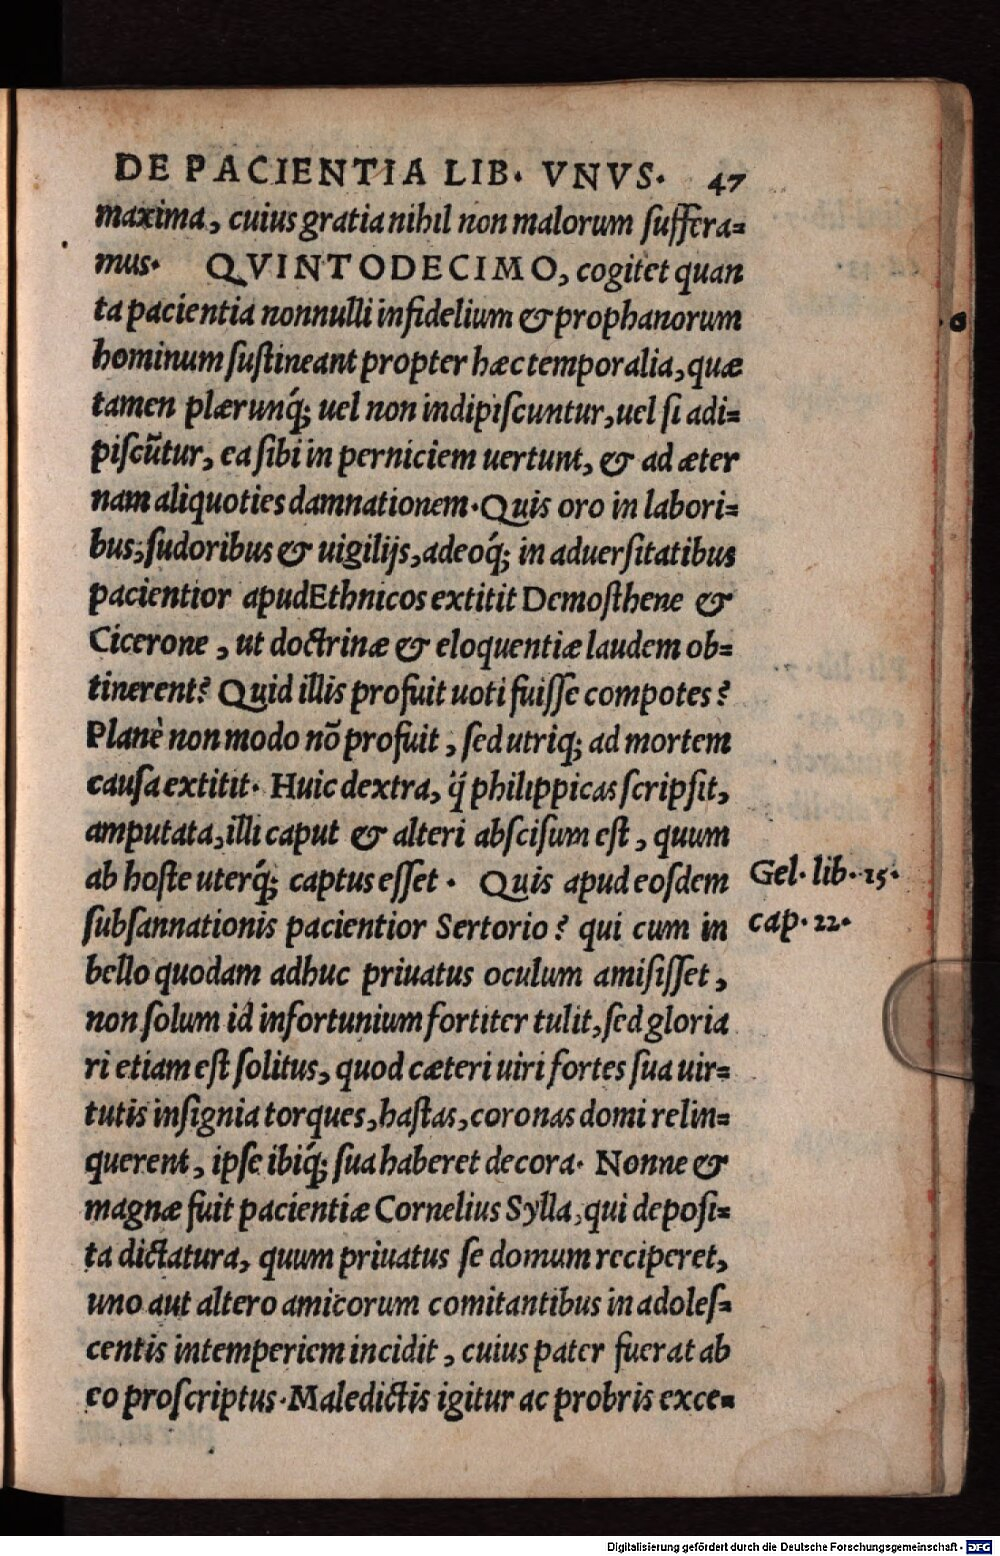 DE PACIENTIA LIB. VNVS. 47
maxima, cuius gratia nihil non malorum ſuffera=
mus. QVINTODECIMO, cogitet quan
ta pacientia nonnulli infidelium & prophanorum
hominum ſuſtineant propter hæc temporalia, quæ
tamen plærunq́; uel non indipiſcuntur, uel ſi adi=
piſcūtur, ea ſibi in perniciem uertunt, & ad æter
nam aliquoties damnationem. Quis oro in labori=
bus, ſudoribus & uigilijs, adeoq́; in aduerſitatibus
pacientior apud Ethnicos extitit Demoſthene &
Cicerone, ut doctrinæ & eloquentiæ laudem ob=
tinerent? Quid illis profuit uoti fuiſſe compotes?
Planè non modo nō profuit, ſed utriq; ad mortem
cauſa extitit. Huic dextra, q̈ philippicas ſcripſit,
amputata, illi caput & alteri abſciſum eſt, quum
ab hoſte uterq́; captus eſſet. Quis apud eoſdem
ſubſannationis pacientior Sertorio? qui cum in
bello quodam adhuc priuatus oculum amiſiſſet,
non ſolum id infortunium fortiter tulit, ſed gloria
ri etiam eſt ſolitus, quod cæteri uiri fortes ſua uir=
tutis inſignia torques, haſtas, coronas domi relin=
querent, ipſe ibiq́; ſua haberet decora. Nonne &
magnæ fuit pacientiæ Cornelius Sylla, qui depoſi=
ta dictatura, quum priuatus ſe domum reciperet,
uno aut altero amicorum comitantibus in adoleſ=
centis intemperiem incidit, cuius pater fuerat ab
eo proſcriptus. Maledictis igitur ac probris exce=
Gel. lib. 15.
cap. 22.
Digitalisierung gefördert durch die Deutsche Forschungsgemeinschaft - DFG